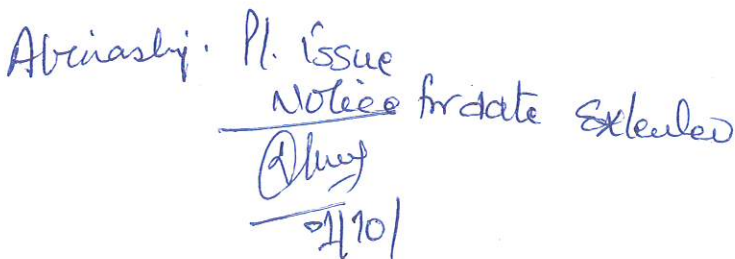 Abinashji. Pl. issue
Notice for date Extended
01/10/